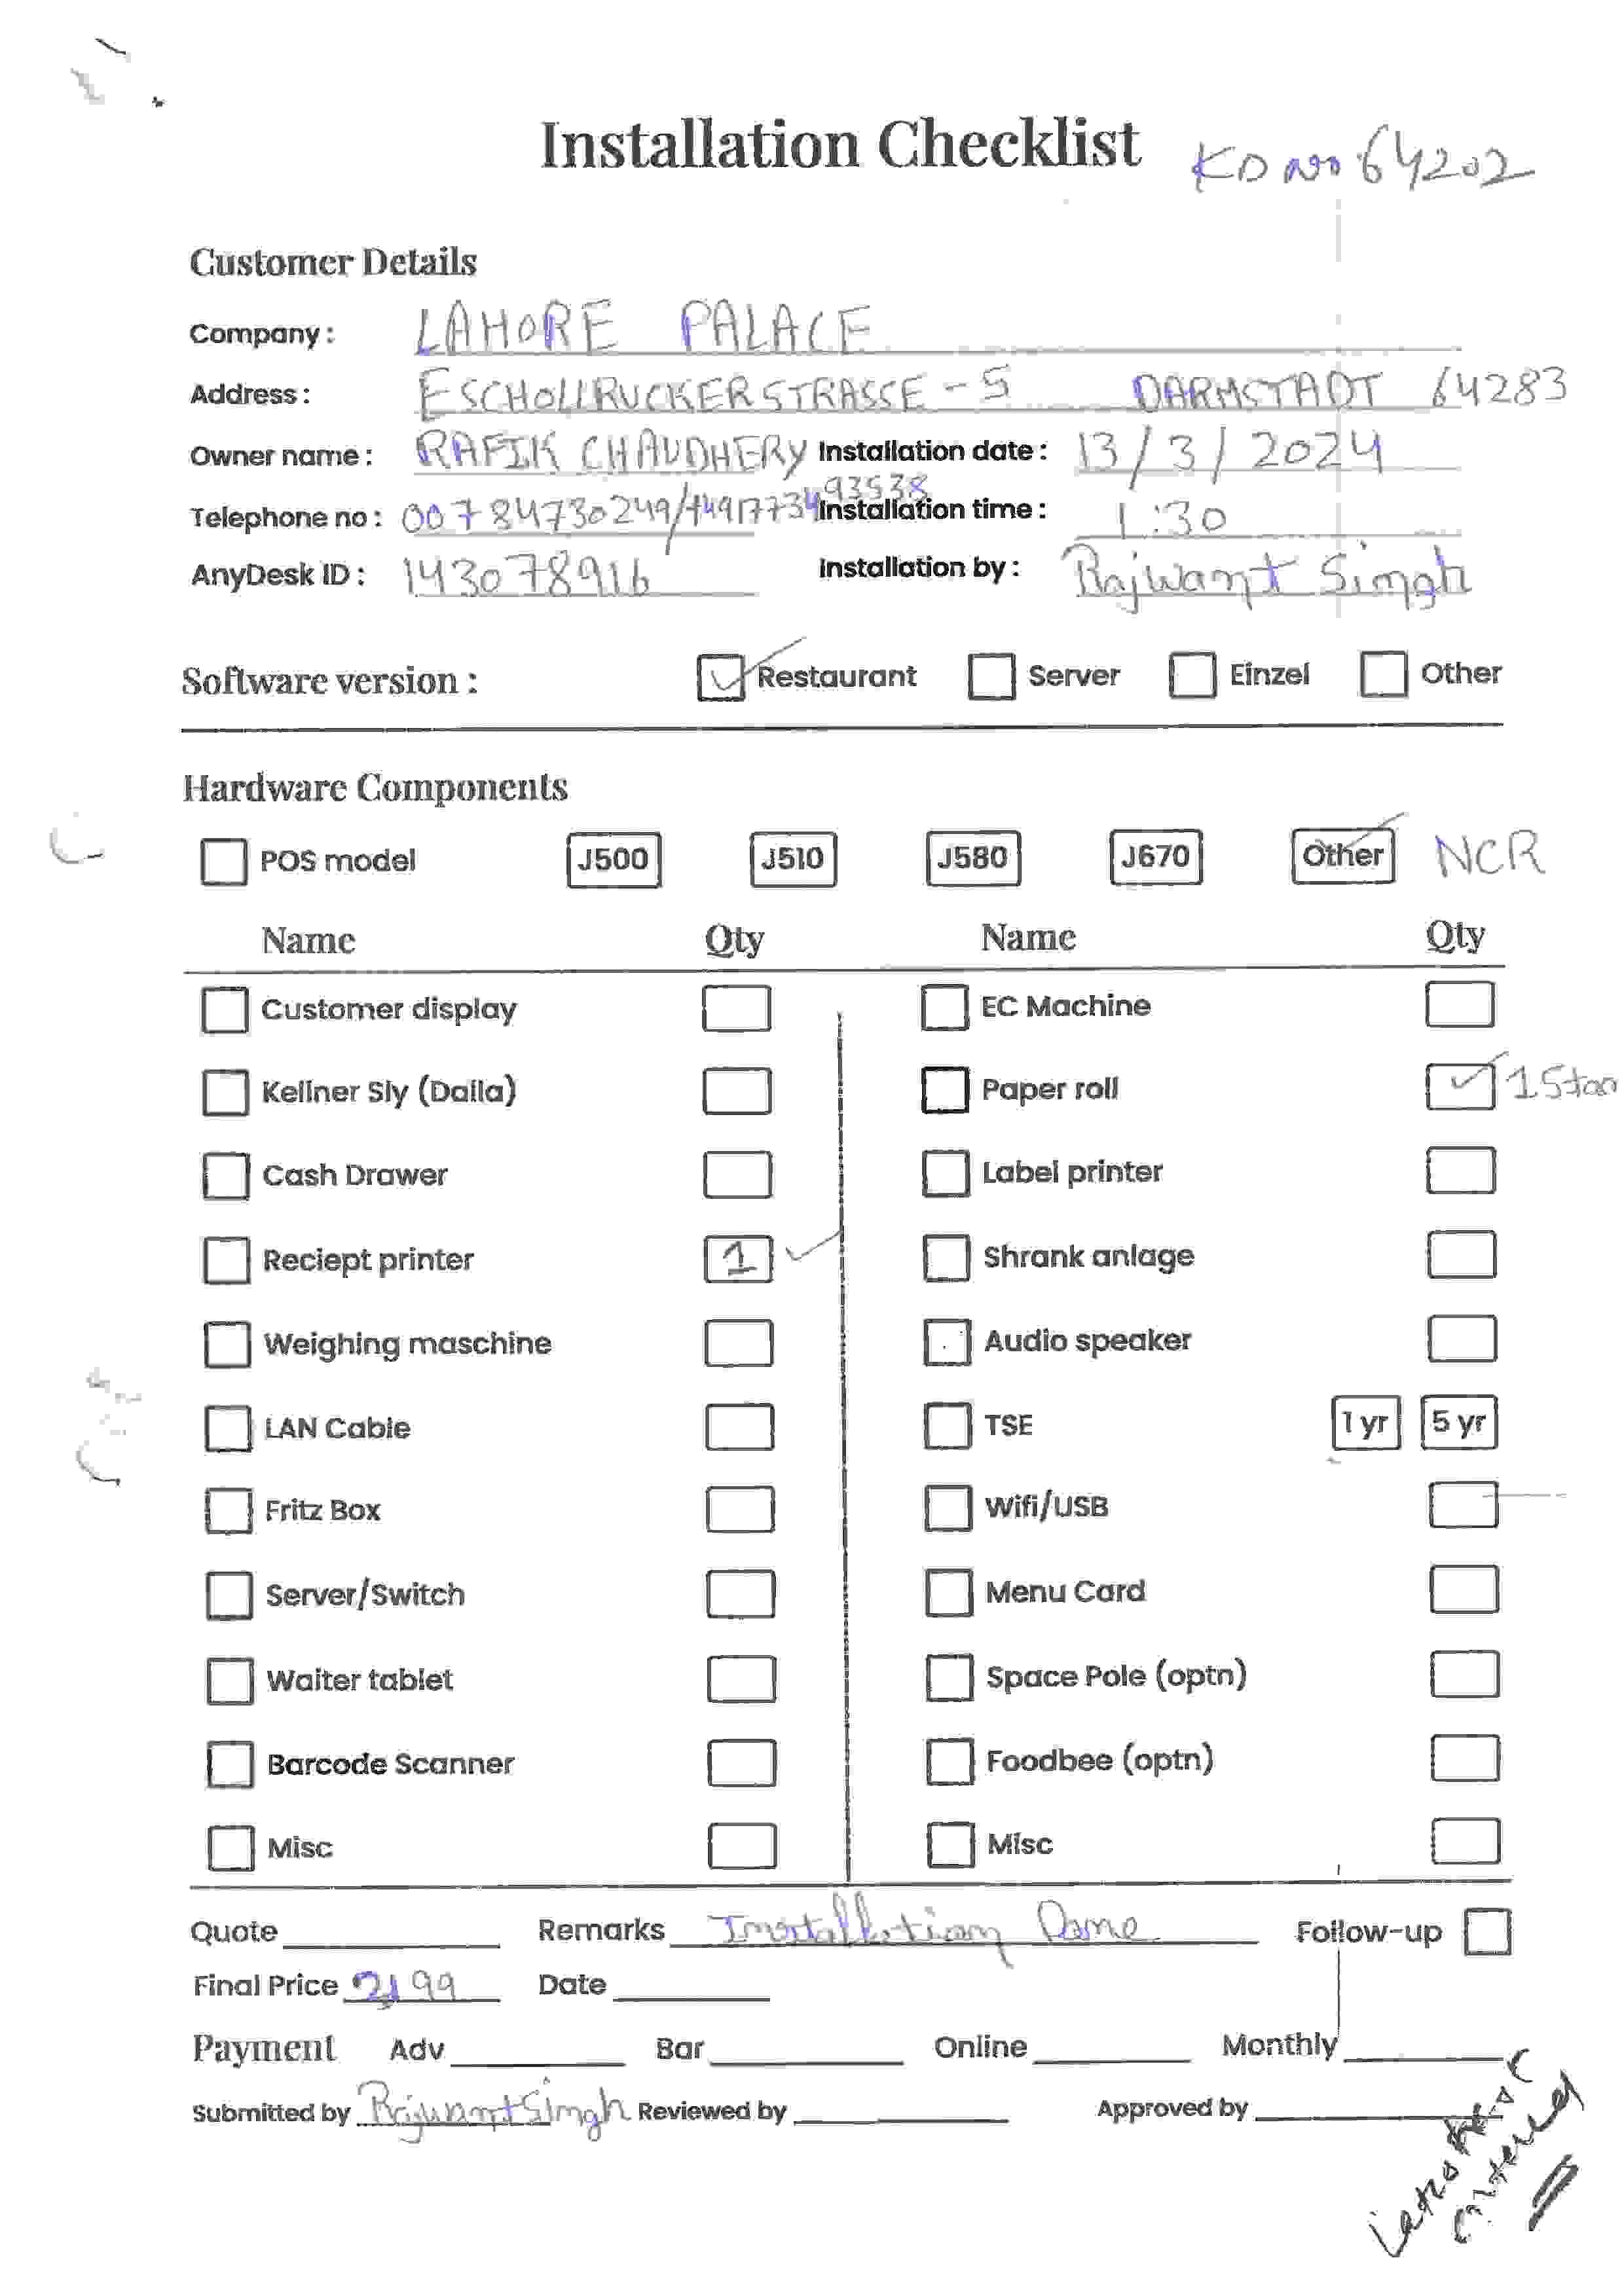 Installation Checklist KD no 64202
Customer Details
Company : LAHORE PALACE
Address : ESCHOLLRUCKERSTRASSE - 5 DARMSTADT 64283
Owner name : RAFIK CHAUDHERY Installation date : 13/3/2024
Telephone no : 00784730249/+491773493538 Installation time : 1:30
AnyDesk ID : 143078916 Installation by : Rajwant Singh
Software version : Restaurant Server Einzel Other
Hardware Components
POS model J500 J510 J580 J670 Other NCR
Name Qty Name Qty
Customer display EC Machine
Kellner Sly (Daila) Paper roll 1 Stan
Cash Drawer Label printer
Reciept printer 1 Shrank anlage
Weighing maschine Audio speaker
LAN Cable TSE 1 yr 5 yr
Fritz Box Wifi/USB
Server/Switch Menu Card
Waiter tablet Space Pole (optn)
Barcode Scanner Foodbee (optn)
Misc Misc
Quote Remarks Installation Done Follow-up
Final Price 2199 Date
Payment Adv Bar Online Monthly
Submitted by Rajwant Singh Reviewed by Approved by
entered